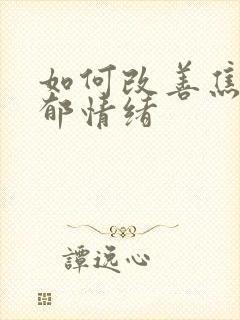 如何改善焦
郁情绪
譚逸心